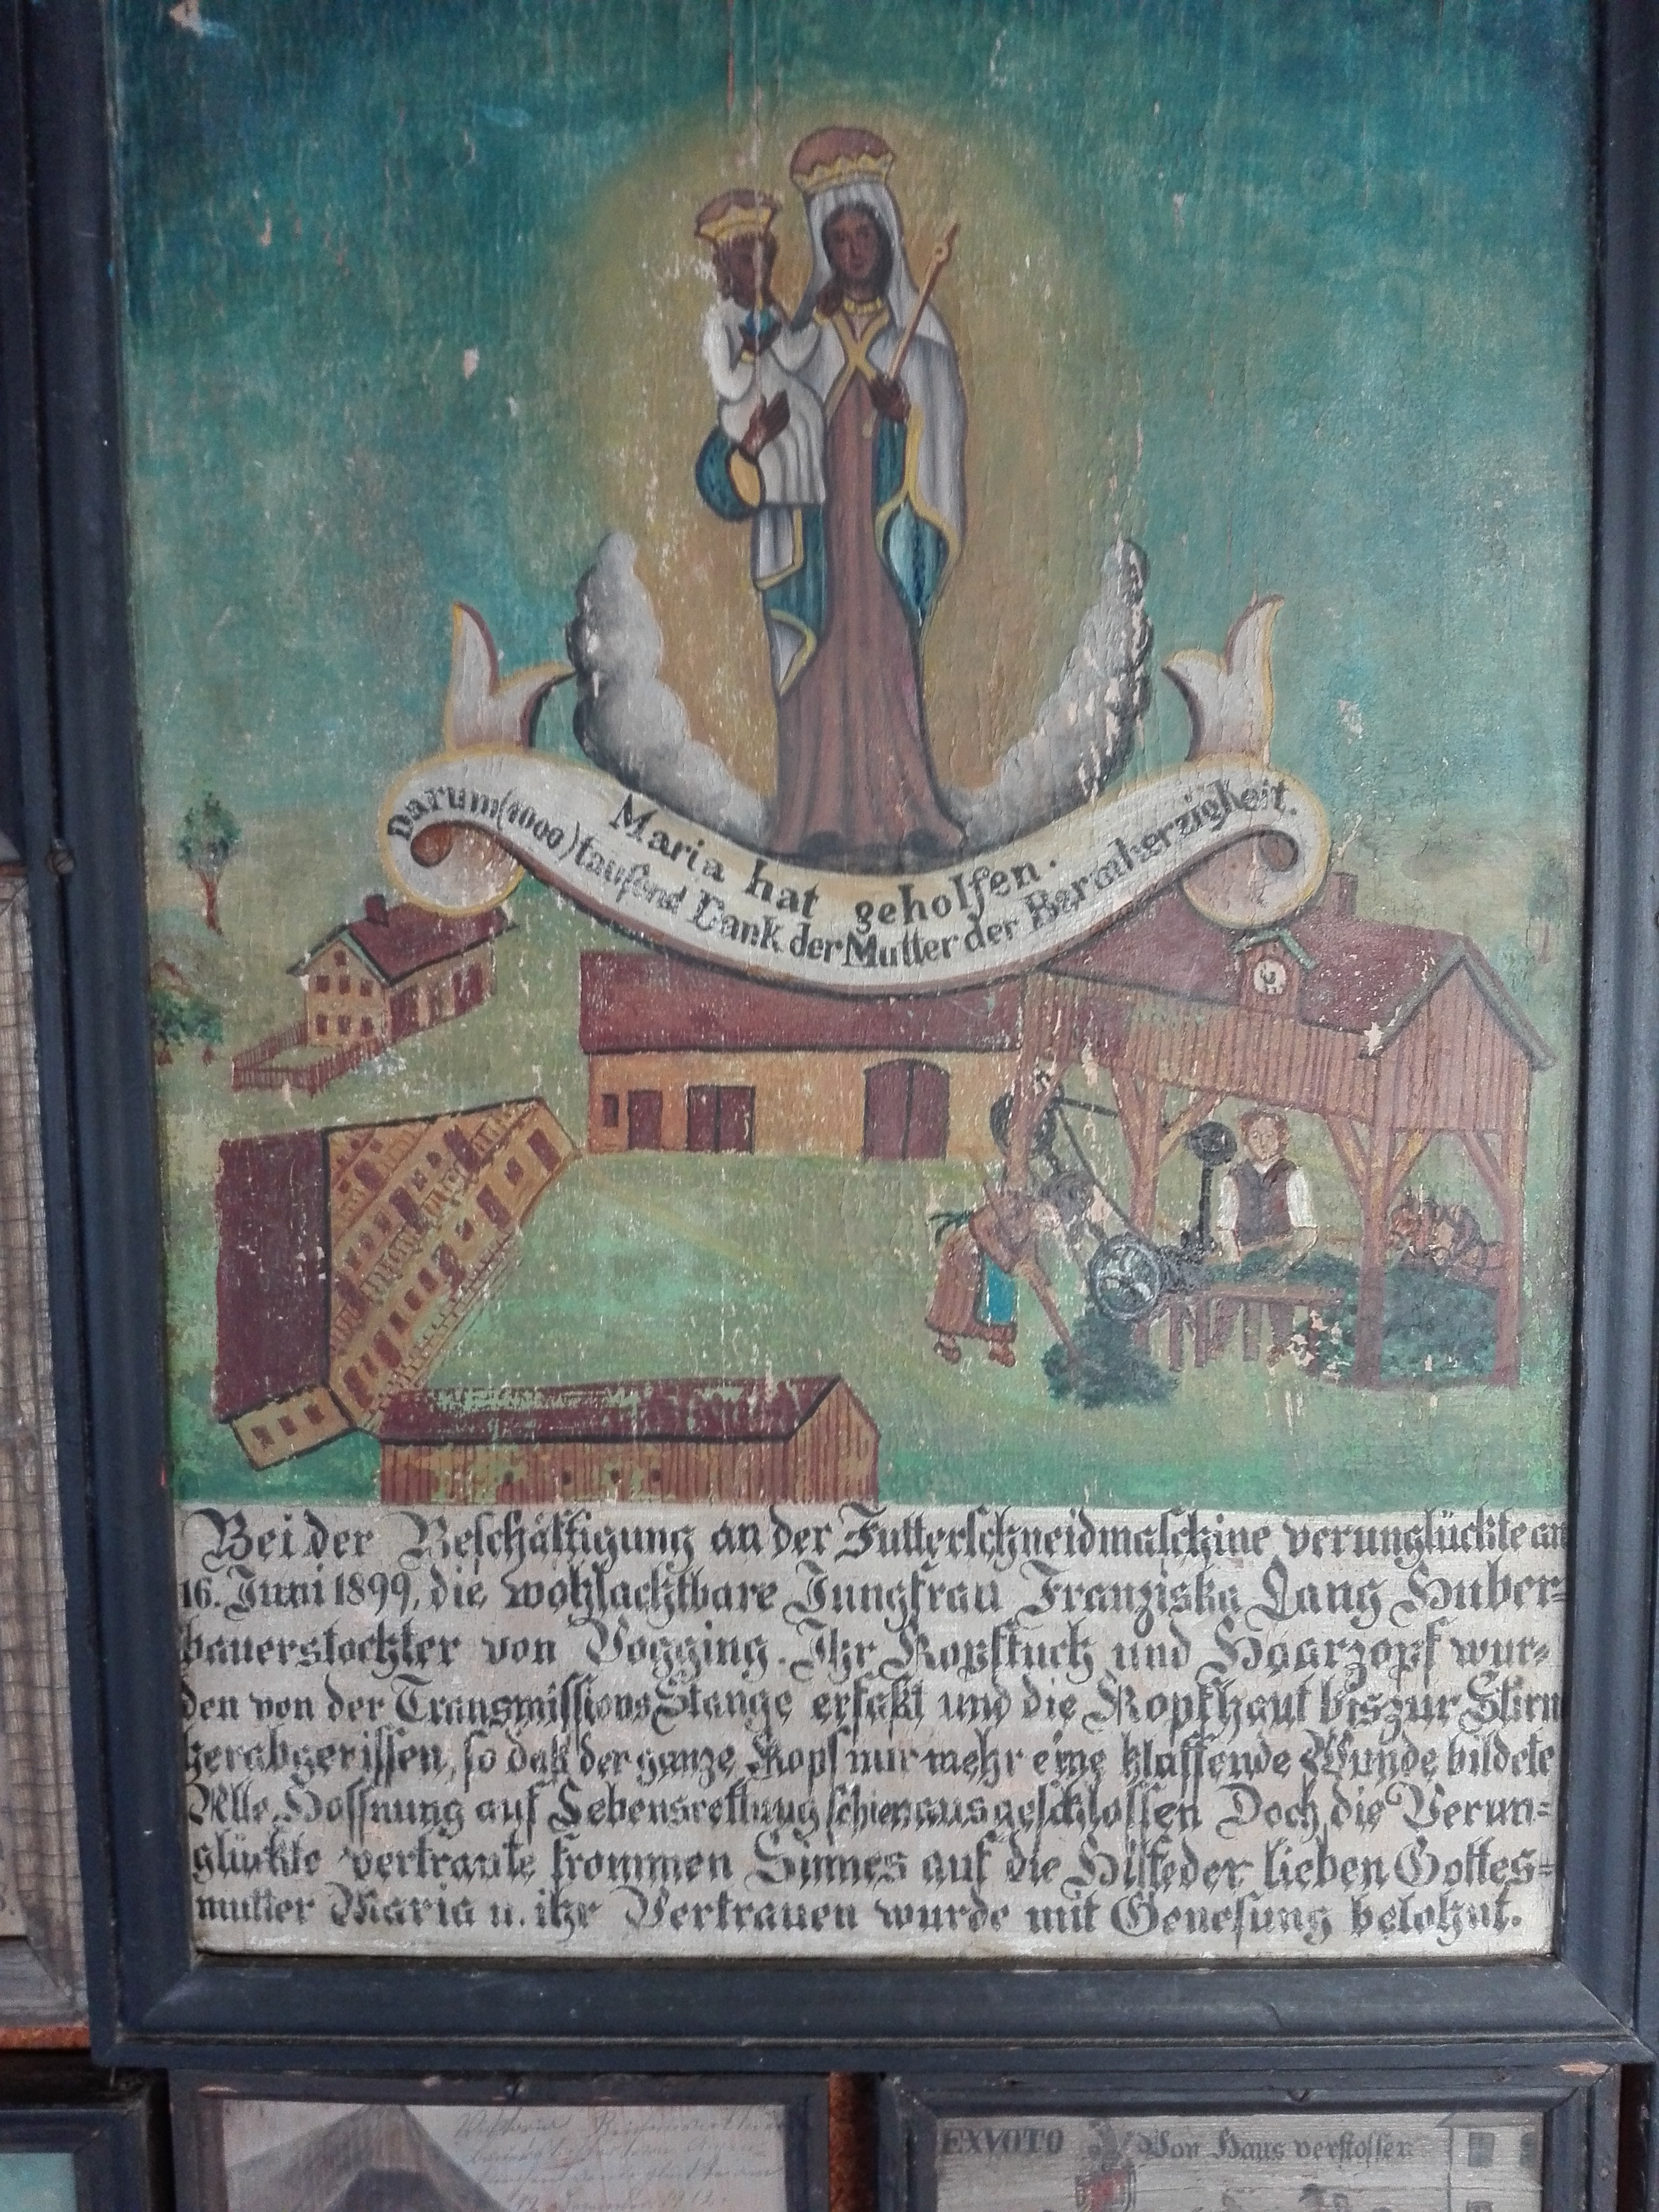 Maria hat geholfen.
Darum (1000) tausend Dank der Mutter der Barmherzigkeit.
Bei der Beschäftigung an der Futterschneidmaschine verunglückte am
16. Juni 1899, die wohlachtbare Jungfrau Franziska Lang Huber=
bauerstochter von Vogging. Ihr Kopftuch und Haarzopf wur=
den von der Transmissions Stange erfaßt und die Kopfhaut bis zur Stirn
herabgerissen, so daß der ganze Kopf nur mehr eine klaffende Wunde bildete
Alle Hoffnung auf Lebensrettung schien ausgeschlossen Doch die Verun=
glückte vertraute frommen Sinnes auf die Hilfe der lieben Gottes=
mutter Maria u. ihr Vertrauen wurde mit Genesung belohnt.
EXVOTO Von Haus verstossen